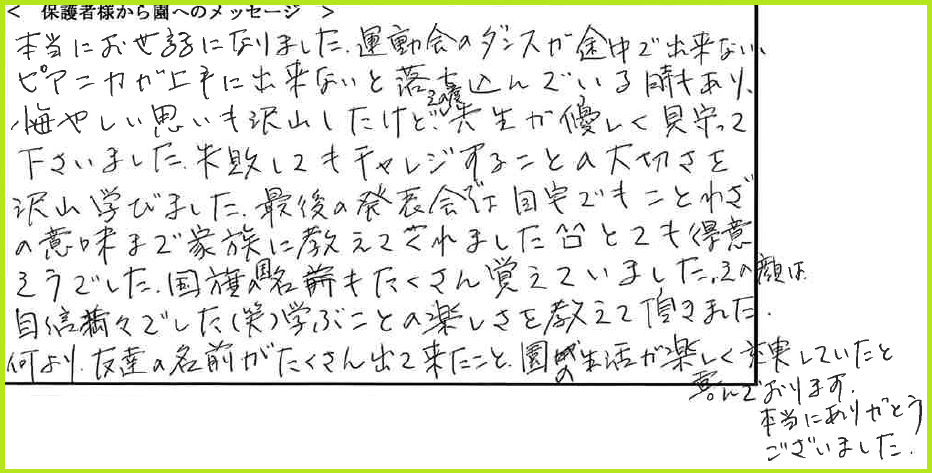 < 保護者様から園へのメッセージ >
本当にお世話になりました。運動会のダンスが途中で出来ない、
ピアニカが上手に出来ないと落ち込んでいる時もあり、
悔やしい思いも沢山したけど、その度先生が優しく見守って
下さいました。失敗してもチャレンジすることの大切さを
沢山学びました。最後の発表会では自宅でもことわざ
の意味まで家族に教えてくれました とても得意
そうでした。国旗の国名前もたくさん覚えていました。その顔は
自信満々でした(笑)学ぶことの楽しさを教えて頂きました。
何より、友達の名前がたくさん出て来たこと、園の生活が楽しく充実していたと
喜んでおります。
本当にありがとう
ございました。